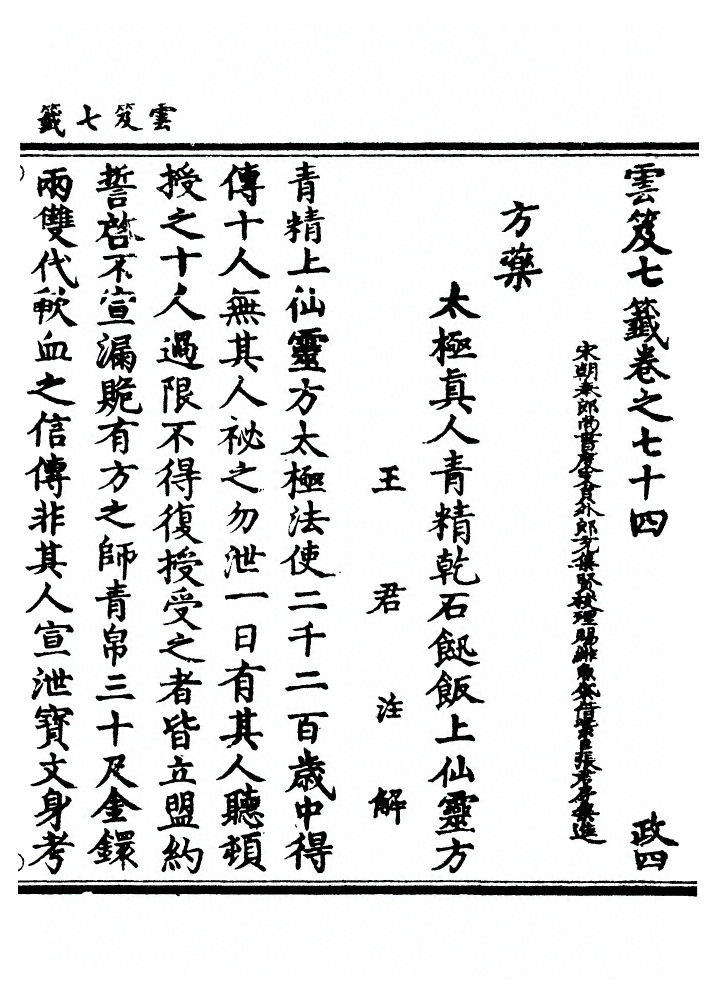 雲笈七籤
雲笈七籤卷之七十四
政四
宋朝奉郎尚書度支員外郎充集賢校理賜緋魚袋借紫臣張君房集進
方藥
太極眞人青精乾石䭀飯上仙靈方
王君注解
青精上仙靈方太極法使二千二百歲中得
傳十人無其人祕之勿泄一日有其人聽頓
授之十人過限不得復授受之者皆立盟約
誓啓不宣漏脆有方之師青帛三十尺金鐶
兩雙代歃血之信傳非其人宣泄寶文身考